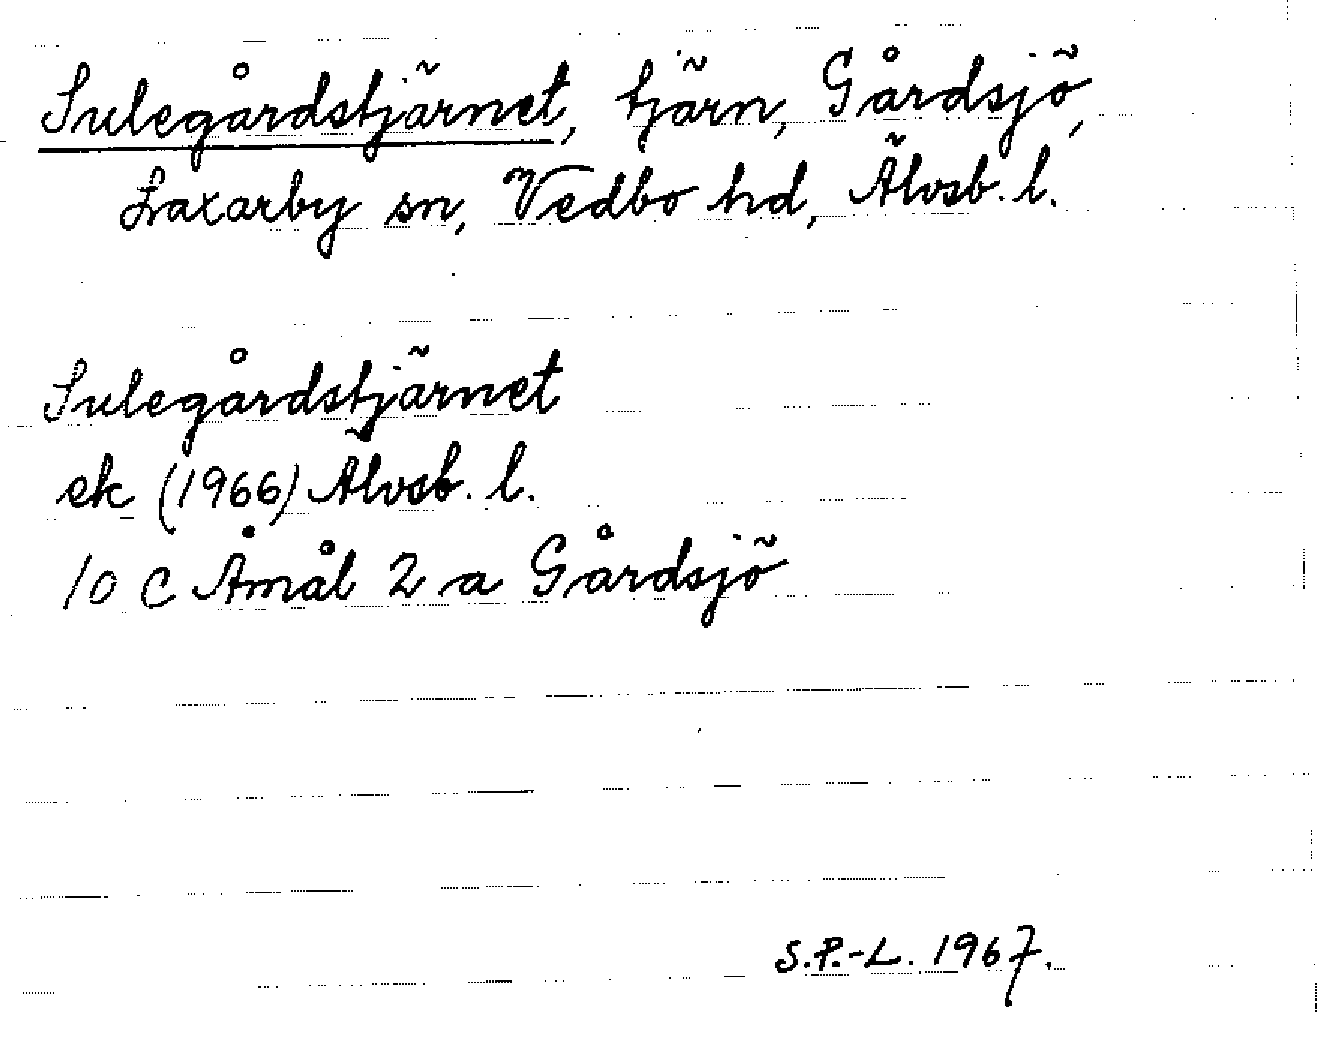 Sulegårdstjärnet, tjärn, Gårdsjö,
Laxarby sn, Vedbo hd, Älvsb. l.
Sulegårdstjärnet
ek (1966) Älvsb. l.
10 C Åmål 2 a Gårdsjö
S.P.-L. 1967.